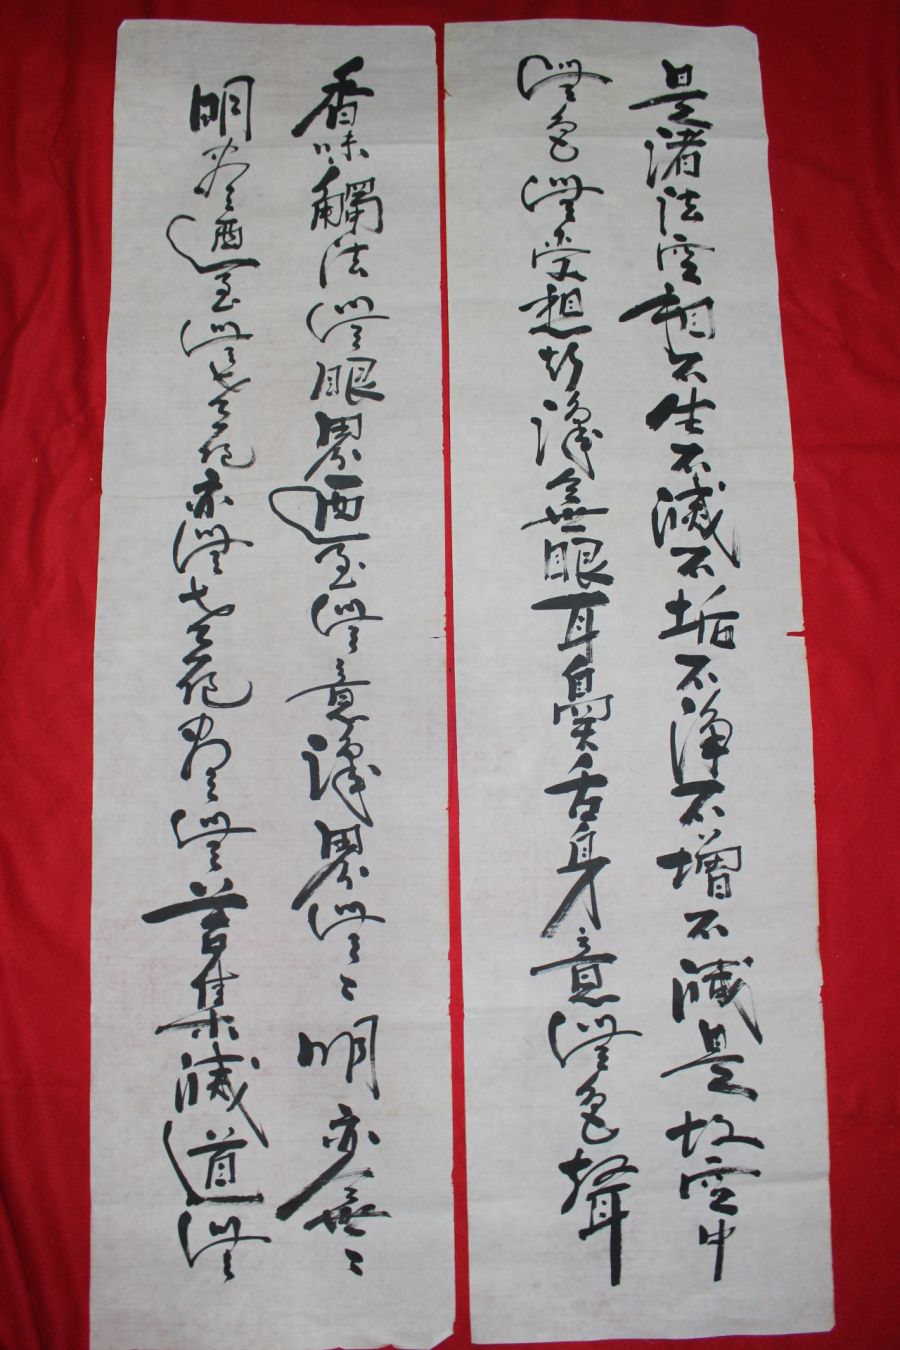 是諸法空相不生不滅不垢不淨不增不減是故空中
無色無受想行識無眼耳鼻舌身意無色聲
香味觸法無眼界迺至無意識界無〻明亦無〻
明盡迺至無老死亦無老死盡無苦集滅道無